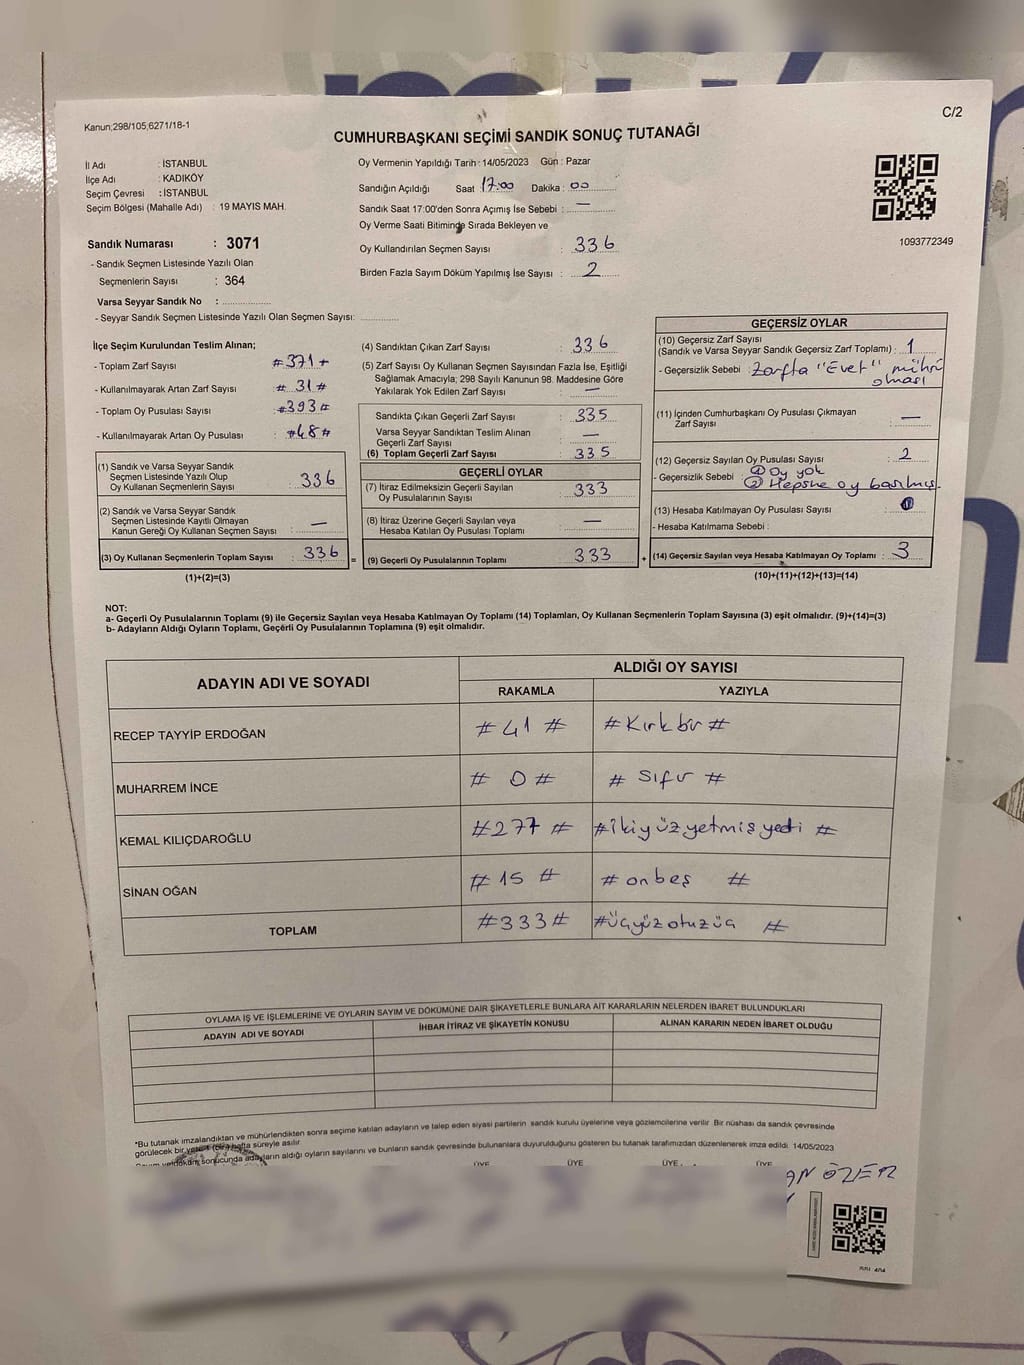 C/2
Kanun;298/105,6271/18-1
CUMHURBAŞKANI SEÇİMİ SANDIK SONUÇ TUTANAĞI
İl Adı : İSTANBUL
İlçe Adı : KADIKÖY
Seçim Çevresi : İSTANBUL
Seçim Bölgesi (Mahalle Adı) : 19 MAYIS MAH.
Sandık Numarası : 3071
- Sandık Seçmen Listesinde Yazılı Olan
Seçmenlerin Sayısı : 364
Varsa Seyyar Sandık No :
- Seyyar Sandık Seçmen Listesinde Yazılı Olan Seçmen Sayısı:
Oy Vermenin Yapıldığı Tarih : 14/05/2023 Gün : Pazar
Sandığın Açıldığı Saat 17:00 Dakika : 00
Sandık Saat 17:00'den Sonra Açımış İse Sebebi : —
Oy Verme Saati Bitiminde Sırada Bekleyen ve
Oy Kullandırılan Seçmen Sayısı : 336
Birden Fazla Sayım Döküm Yapılmış İse Sayısı : 2
1093772349
İlçe Seçim Kurulundan Teslim Alınan;
- Toplam Zarf Sayısı : #371+
- Kullanılmayarak Artan Zarf Sayısı : # 31 #
- Toplam Oy Pusulası Sayısı : #393#
- Kullanılmayarak Artan Oy Pusulası : #48#
(1) Sandık ve Varsa Seyyar Sandık
Seçmen Listesinde Yazılı Olup
Oy Kullanan Seçmenlerin Sayısı : 336
(2) Sandık ve Varsa Seyyar Sandık
Seçmen Listesinde Kayıtlı Olmayan
Kanun Gereği Oy Kullanan Seçmen Sayısı : —
(3) Oy Kullanan Seçmenlerin Toplam Sayısı : 336 =
(1)+(2)=(3)
(4) Sandıktan Çıkan Zarf Sayısı : 336
(5) Zarf Sayısı Oy Kullanan Seçmen Sayısından Fazla İse, Eşitliği
Sağlamak Amacıyla; 298 Sayılı Kanunun 98. Maddesine Göre
Yakılarak Yok Edilen Zarf Sayısı : —
Sandıkta Çıkan Geçerli Zarf Sayısı : 335
Varsa Seyyar Sandıktan Teslim Alınan
Geçerli Zarf Sayısı : —
(6) Toplam Geçerli Zarf Sayısı : 335
GEÇERLİ OYLAR
(7) İtiraz Edilmeksizin Geçerli Sayılan
Oy Pusulalarının Sayısı : 333
(8) İtiraz Üzerine Geçerli Sayılan veya
Hesaba Katılan Oy Pusulası Toplamı : —
(9) Geçerli Oy Pusulalarının Toplamı : 333 +
GEÇERSİZ OYLAR
(10) Geçersiz Zarf Sayısı
(Sandık ve Varsa Seyyar Sandık Geçersiz Zarf Toplamı) : 1
- Geçersizlik Sebebi : Zarfta "Evet" mührü
olması
(11) İçinden Cumhurbaşkanı Oy Pusulası Çıkmayan
Zarf Sayısı : —
(12) Geçersiz Sayılan Oy Pusulası Sayısı : 2
- Geçersizlik Sebebi ① Oy yok
② Hepsine oy basılmış.
(13) Hesaba Katılmayan Oy Pusulası Sayısı :
- Hesaba Katılmama Sebebi :
(14) Geçersiz Sayılan veya Hesaba Katılmayan Oy Toplamı : 3
(10)+(11)+(12)+(13)=(14)
NOT:
a- Geçerli Oy Pusulalarının Toplamı (9) ile Geçersiz Sayılan veya Hesaba Katılmayan Oy Toplamı (14) Toplamları, Oy Kullanan Seçmenlerin Toplam Sayısına (3) eşit olmalıdır. (9)+(14)=(3)
b- Adayların Aldığı Oyların Toplamı, Geçerli Oy Pusulalarının Toplamına (9) eşit olmalıdır.
ADAYIN ADI VE SOYADI
ALDIĞI OY SAYISI
RAKAMLA YAZIYLA
RECEP TAYYİP ERDOĞAN # 41 # #Kırkbir #
MUHARREM İNCE # 0 # # Sıfır #
KEMAL KILIÇDAROĞLU #277 # #ikiyüzyetmişyedi #
SİNAN OĞAN # 15 # # onbeş #
TOPLAM #333# #üçyüzotuzüç #
OYLAMA İŞ VE İŞLEMLERİNE VE OYLARIN SAYIM VE DÖKÜMÜNE DAİR ŞİKAYETLERLE BUNLARA AİT KARARLARIN NELERDEN İBARET BULUNDUKLARI
ADAYIN ADI VE SOYADI İHBAR İTİRAZ VE ŞİKAYETİN KONUSU ALINAN KARARIN NEDEN İBARET OLDUĞU
*Bu tutanak imzalandıktan ve mühürlendikten sonra seçime katılan adayların ve talep eden siyasi partilerin sandık kurulu üyelerine veya gözlemcilerine verilir. Bir nüshası da sandık çevresinde
görülecek bir yere 1 (bir) hafta süreyle asılır.
sonucunda adayların aldığı oyların sayılarını ve bunların sandık çevresinde bulunanlara duyurulduğunu gösteren bu tutanak tarafımızdan düzenlenerek imza edildi. 14/05/2023
ÜYE ÜYE ÜYE ÜYE
ÖZER